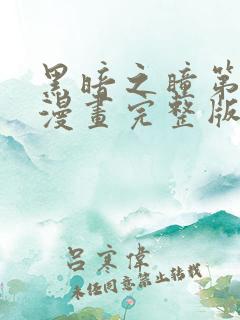 黑暗之瞳第
漫畫完整版
呂寒偉
未经同意禁止转载